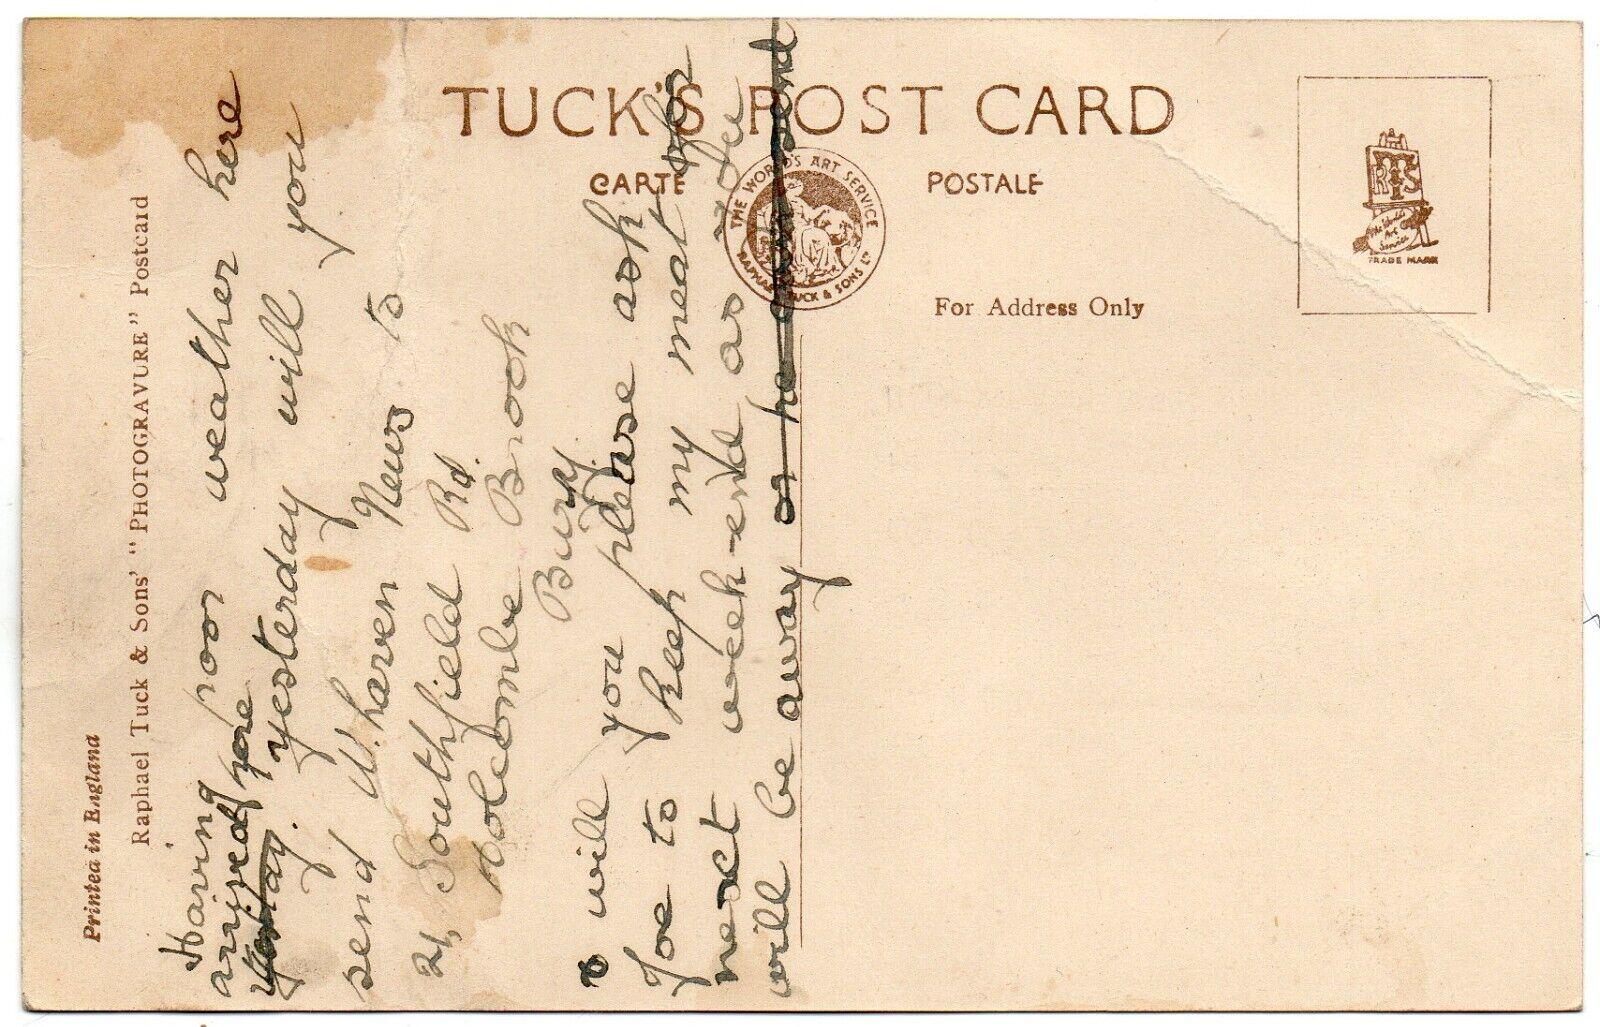 TUCK'S POST CARD
CARTE POSTALE
THE WORLD'S ART SERVICE
RAPHAEL TUCK & SONS LD
For Address Only
R T S
The World's
Art
Service
TRADE MARK
Printed in England
Raphael Tuck & Sons' "PHOTOGRAVURE" Postcard
Having poor weather here
arrived here
yesterday will you
send W.haven News to
21, Southfield Rd.
Holcombe Brook
Bury.
& will you please ask
Joe to keep my meat for
next week-end as I
will be away